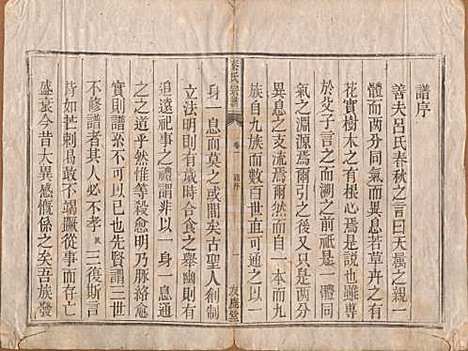 譜序
善夫呂氏春秋之言曰天屬之親一
體而兩分同氣而異息若草卉之有
花實樹木之有根心是言也雖專
於父子言之而溯之前祗是一體
之之淵源焉爾引之後又只是兩分
異息之支流焉爾然自一本而九
族自九族而百世直可通之以一
身一息而莫之或間矣古聖人創制
立法明則有歲時合食之舉幽則有
追遠祀事之禮謂非以一身一息通
之之道乎然惟等殺愈明乃脈絡愈
實則譜不可以已也先賢謂三世
不修譜者其人必不孝三復斯言
能如芒刺曷敢不竭蹶從事而存亡
盛衰今昔大異感慨係之矣吾族發
氏宗譜
卷
譜序
一
友慶堂